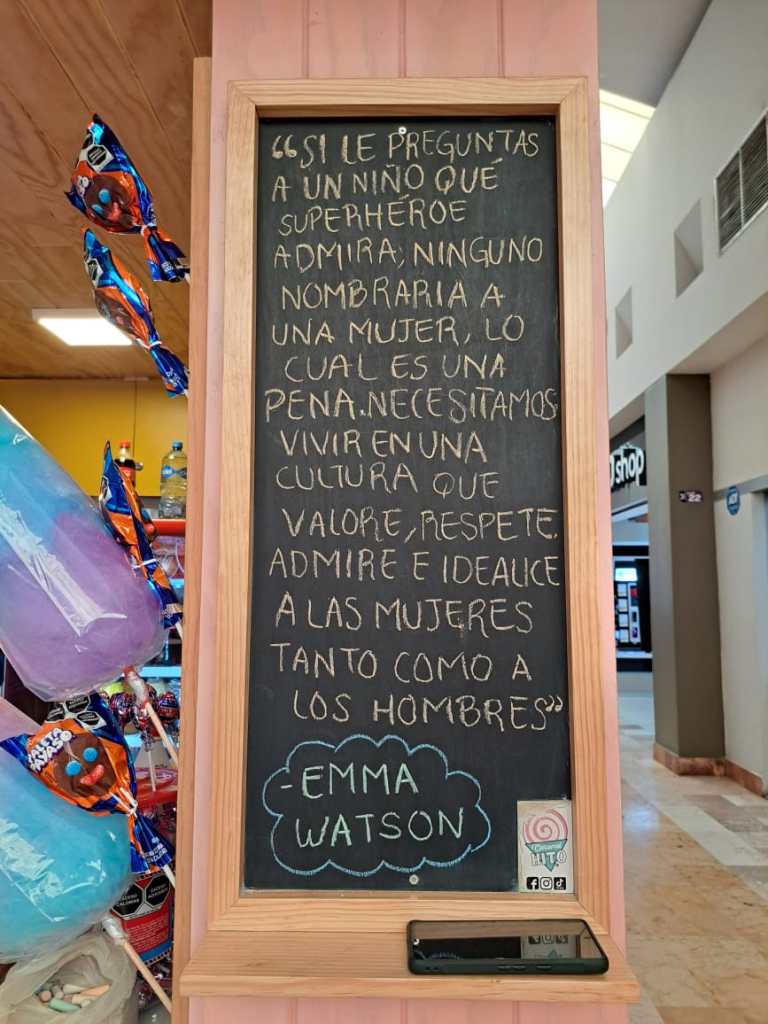 “SI LE PREGUNTAS
A UN NIÑO QUÉ
SUPERHÉROE
ADMIRA, NINGUNO
NOMBRARIA A
UNA MUJER, LO
CUAL ES UNA
PENA. NECESITAMOS
VIVIR EN UNA
CULTURA QUE
VALORE, RESPETE,
ADMIRE E IDEALICE
A LAS MUJERES
TANTO COMO A
LOS HOMBRES”
-EMMA
WATSON
HITO
PALETA
PAYASO
shop
22